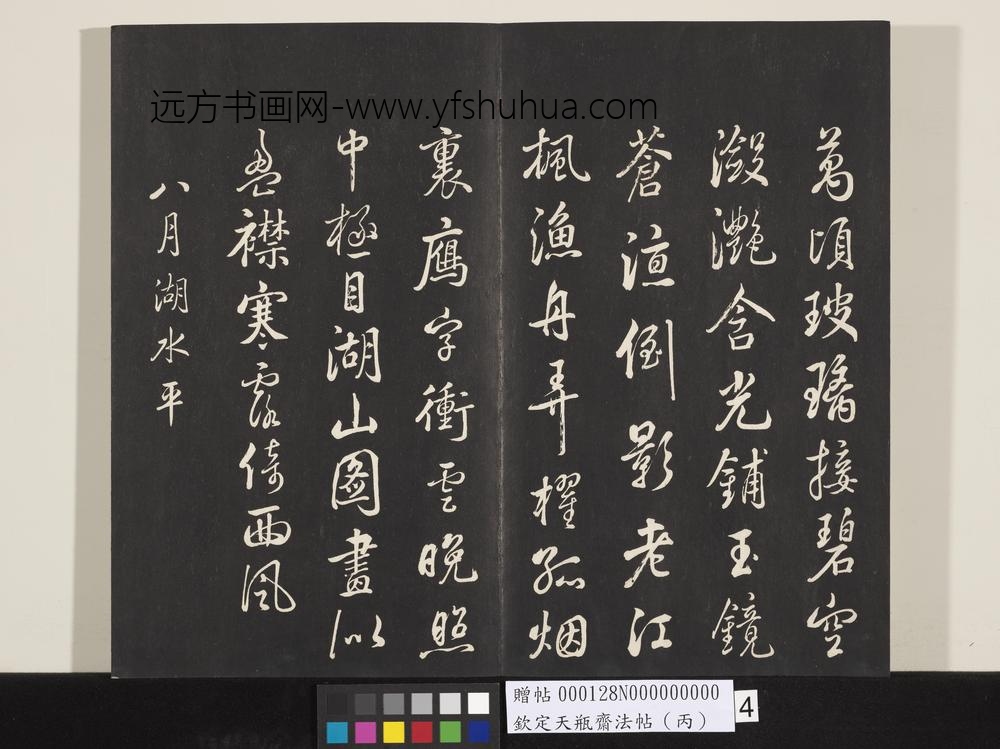 远方书画网-www.yfshuhua.com
萬頃玻璃接碧空
瀲灧含光鋪玉鏡
蒼涼倒影老江
楓漁舟弄櫂孤烟
裏鴈字衝雲晚照
中極目湖山圖畫似
盈襟寒露倚西風
八月湖水平
贈帖 000128N000000000
欽定天瓶齋法帖（丙）
4